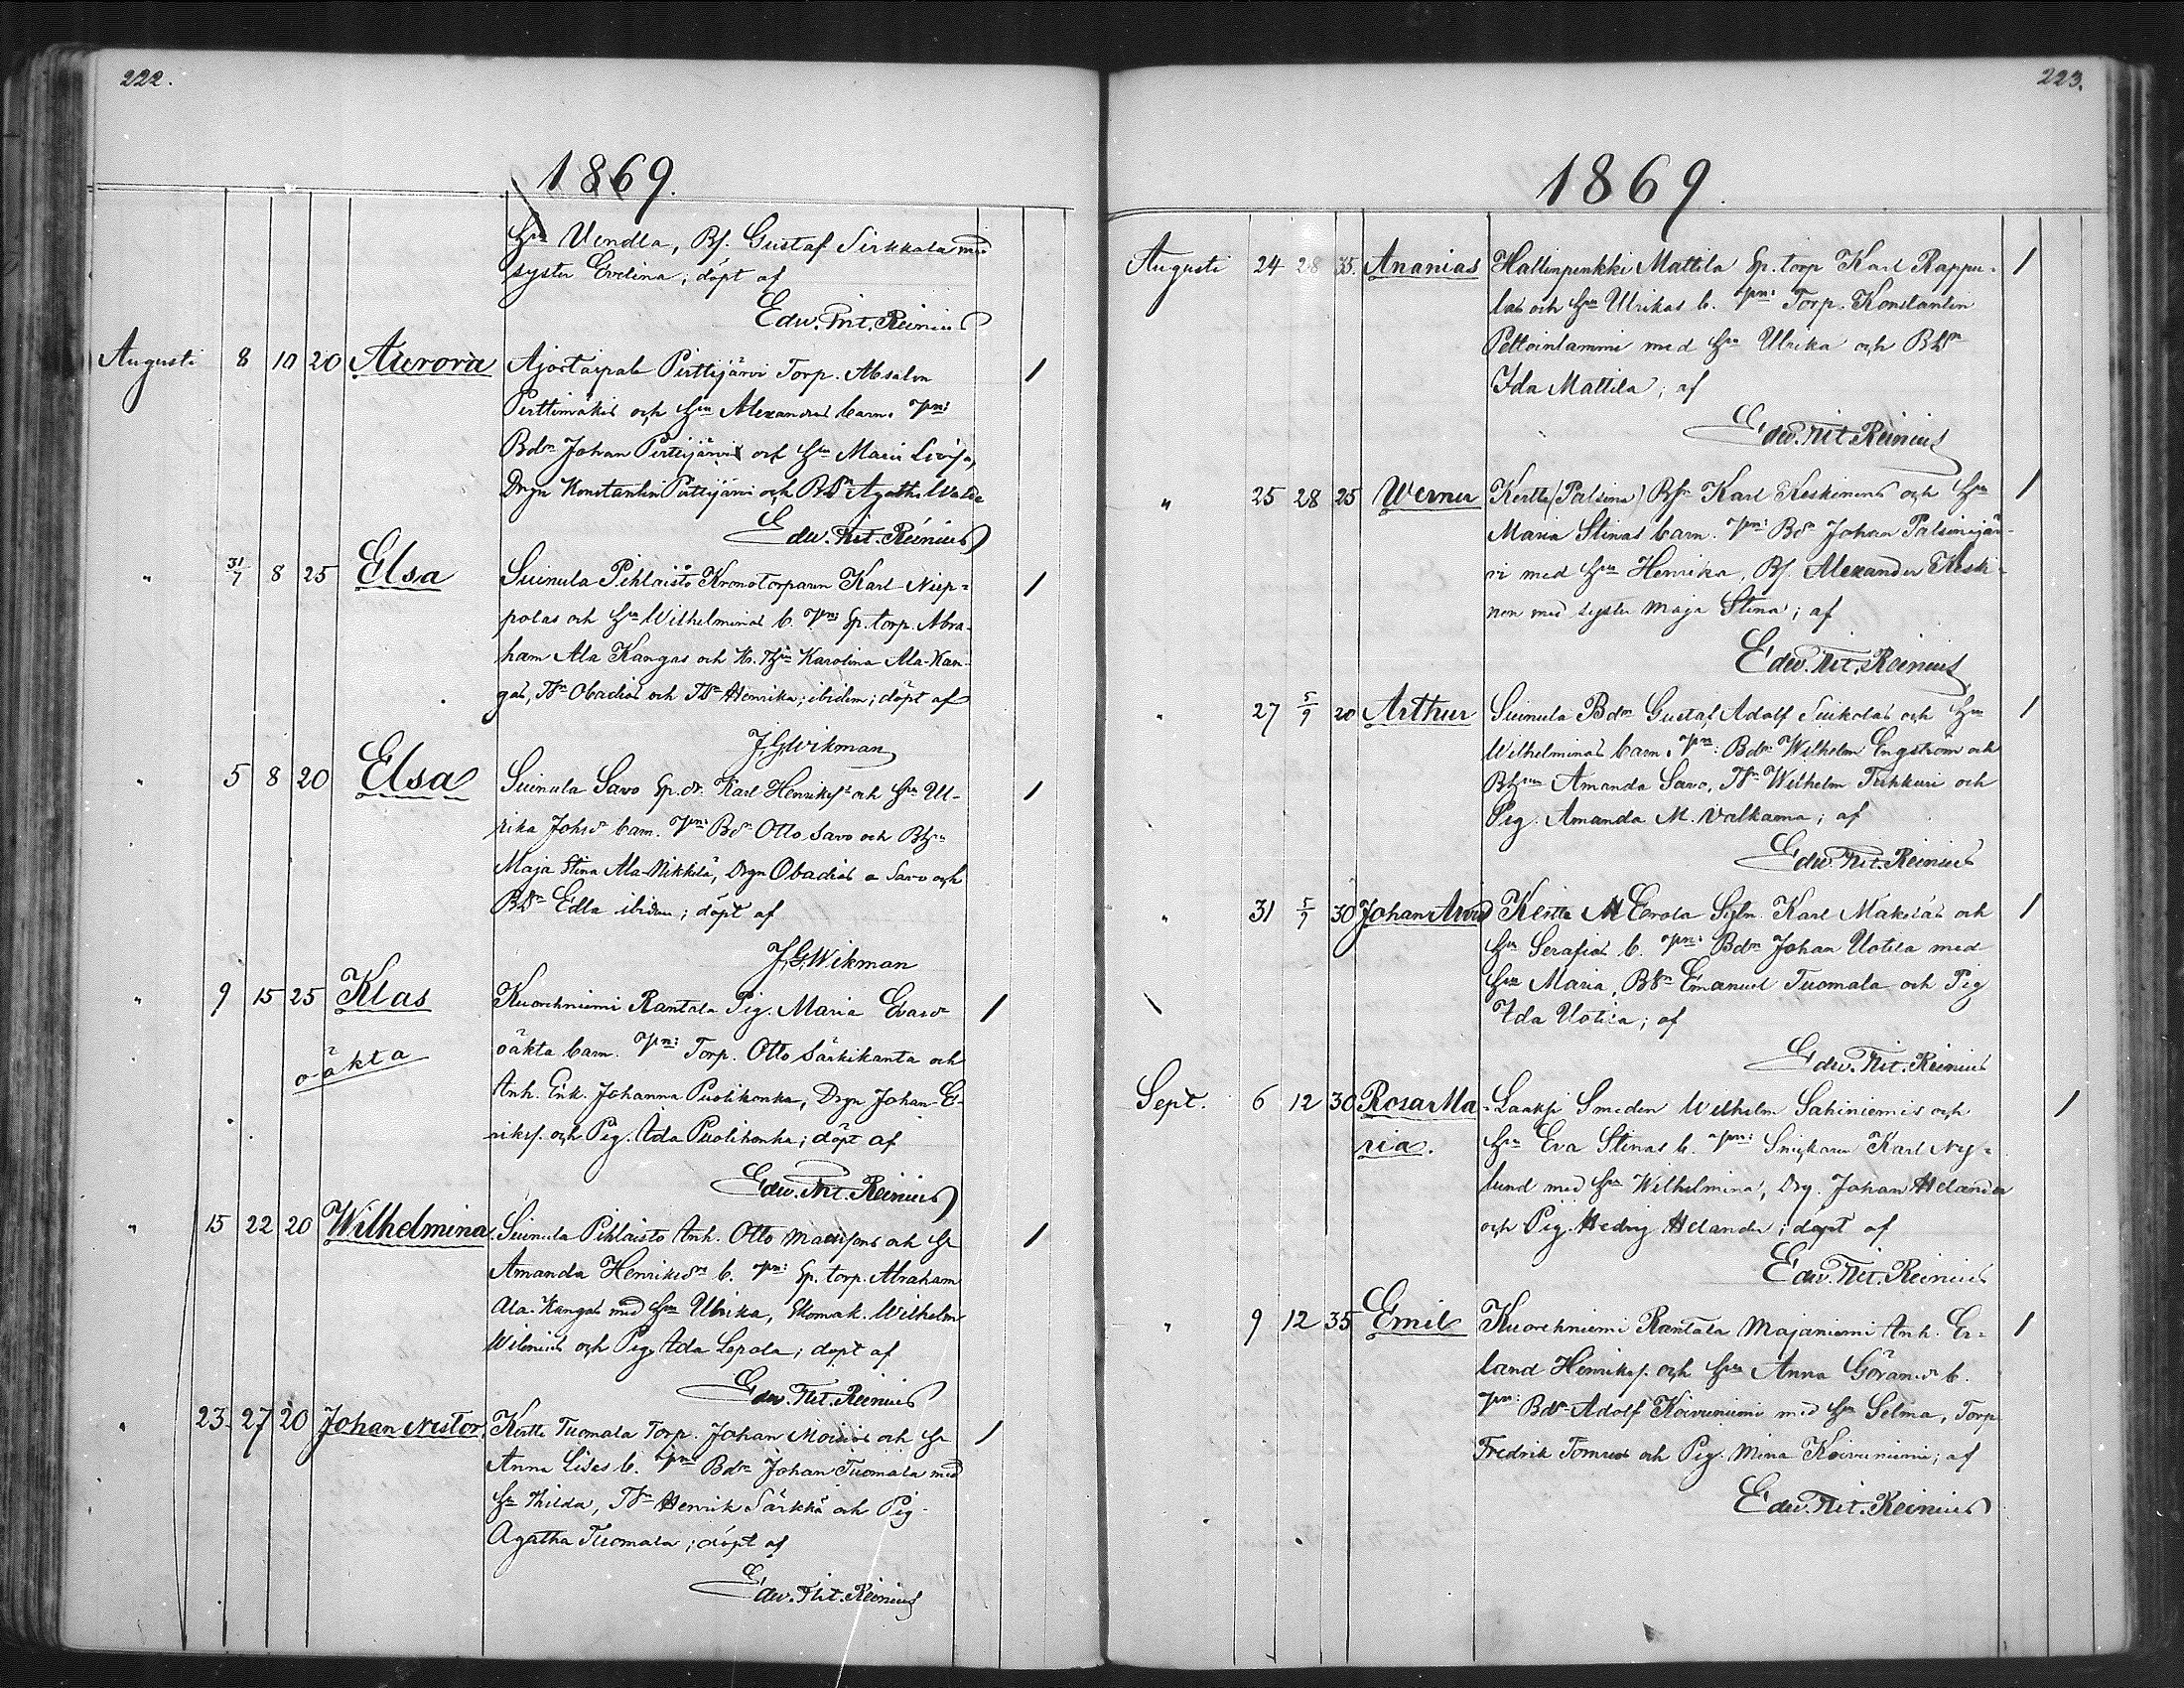 222.
1869.
Hu Vendla, Bs. Gustaf Sirkkala med
syster Evelina; döpt af
Edw. Tit. Reinius
Augusti 8 10 20 Aurora Ajostaipale Pirttijärvi Torp. Absalon
Pirttimäkis och Hu Alexandras barn.
Bdn Johan Pirttijärvi och Hu Maria Lovisa,
Drgn Konstantin Pirttijärvi och BDr Agatha
Edw. Tit. Reinius
" 31/7 8 25 Elsa Suinula Pihlaisto Kronotorparen Karl Niep-
polas och Hu Wilhelminas b. Sp. torp. Abra-
ham Ala Kangas och Karolina Ala-Kan-
gas, Obadias och Henrika; ibidem; döpt af
J.G. Wikman
" 5 8 20 Elsa Suinula Savo Sp. dr. Karl Henrikss och Hu Ul-
rika Johsdr barn. Otto Savo och
Maja Stina Ala-Nikkilä, Drgn Obadias a Savo och
BDr Edla ibidem; döpt af
J.G. Wikman
" 9 15 25 Klas Kuorehniemi Rantala Pig. Maria Evasdr
oäkta oäkta barn. Torp. Otto Särkikanta och
Inh. Enk. Johanna Puolikonka, Drgn Johan E-
rikss. och Pig. Ida Puolihonka; döpt af
Edw. Tit. Reinius
" 15 22 20 Wilhelmina Suinula Pihlaisto Inh. Otto och Hu
Amanda Henriksdrs b. Sp. torp. Abraham
Ala-Kangas med Hu Ulrika, Skomak. Wilhelm
Wilenius och Pig. Ida Lepola; döpt af
Edw. Tit. Reinius
" 23 27 20 Johan Nestor Kertte Tuomala Torp. Johan Moisios och Hu
Anna Lisas b. Bdn Johan Tuomala med
Hu Hilda, Henrik Särkkä och Pig.
Agatha Tuomala; döpt af
Edw. Tit. Reinius
223.
1869.
Augusti 24 28 35. Ananias Hallinpenkki Mattila Sp. torp Karl Rappu-
las och Hu Ulrikas b. Torp. Konstantin
Peltoinlammi med Hu Ulrika och BDr
Ida Mattila; af
Edw. Tit. Reinius
" 25 28 25 Werner Kertte (Palsina) Karl Keskinens och Hu
Maria Stinas barn. Johan Palsinajär-
vi med Hu Henrika, Bs. Alexander Keski-
nen med syster Maja Stina; af
Edw. Tit. Reinius
" 27 5/9 20 Arthur Suinula Bdn Gustaf Adolf Suikolas och Hu
Wilhelminas barn. Bdn Wilhelm Engström och
Amanda Savo, Wilhelm Tuhkuri och
Pig. Amanda M. Valkama; af
Edw. Tit. Reinius
" 31 5/9 30 Johan Arvid Kertte Eerola Karl Mäkeläs och
Hu Serafias b. Bdn Johan Uotila med
Hu Maria, Emanuel Tuomala och Pig
Ida Uotila; af
Edw. Tit. Reinius
Sept. 6 12 30 Rosa Ma- Laaksi Smeden Wilhelm Sahiniemis och
ria. Hu Eva Stinas b. Snickaren Karl Ny-
lund med Hu Wilhelmina, Drg. Johan Helander
och Pig. Hedvig Helander; döpt af
Edw. Tit. Reinius
" 9 12 35 Emil Kuorehniemi Rantala Majaniemi Inh. Er-
land Henrikss. och Hu Anna Göransdr b.
Adolf Koivuniemi med Hu Selma, Torp.
Fredrik Tomeus och Pig. Mina Koivuniemi; af
Edw. Tit. Reinius